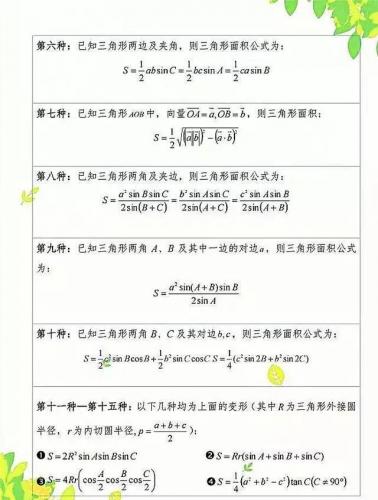 第六种：已知三角形两边及夹角，则三角形面积公式为：
S=1/2 ab sin C=1/2 bc sin A=1/2 ca sin B
第七种：已知三角形AOB中，向量OA=a,OB=b，则三角形面积：
S=1/2 √((|a||b|)²-(a·b)²)
第八种：已知三角形两角及夹边，则三角形面积公式为：
S=a² sin B sin C/2sin(B+C)=b² sin A sin C/2sin(A+C)=c² sin A sin B/2sin(A+B)
第九种：已知三角形两角 A、B 及其中一边的对边a，则三角形面积公式
为：
S=a² sin(A+B)sin B/2sin A
第十种：已知三角形两角 B、C 及其对边b,c，则三角形面积公式为：
S=1/2 c² sin B cos B+1/2 b² sin C cos C S=1/4(c² sin 2B+b² sin 2C)
第十一种—第十五种：以下几种均为上面的变形（其中R为三角形外接圆
半径，r为内切圆半径,p=a+b+c/2）；
❶S=2R² sin A sin B sin C
❷S=Rr(sin A+sin B+sin C)
❸S=4Rr(cos A/2 cos B/2 cos C/2)
❹S=1/4(a²+b²-c²)tan C(C≠90°)